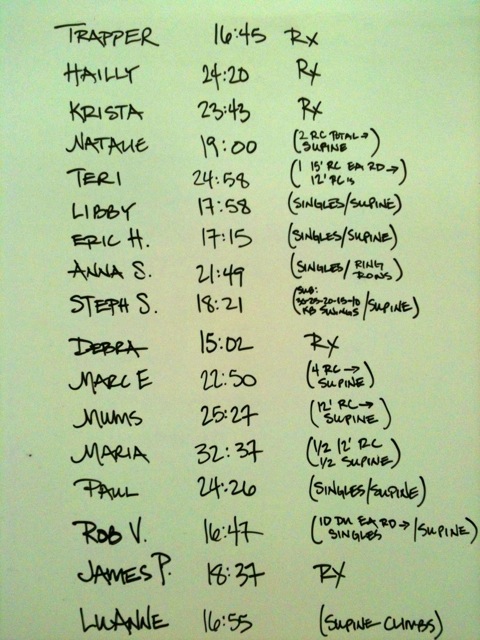 TRAPPER 16:45 Rx
HAILLY 24:20 Rx
KRISTA 23:43 Rx
NATALIE 19:00 (2 RC TOTAL →
SUPINE)
TERI 24:58 (1 15' RC EA RD →
12' RC's)
LIBBY 17:58 (SINGLES/SUPINE)
ERIC H. 17:15 (SINGLES/SUPINE)
ANNA S. 21:49 (SINGLES/RING
ROWS)
STEPH S. 18:21 (SUB:
30-25-20-15-10
KB SWINGS /SUPINE)
DEBRA 15:02 Rx
MARC E 22:50 (4 RC →
SUPINE)
MUMS 25:27 (12' RC →
SUPINE)
MARIA 32:37 (1/2 12' RC
1/2 SUPINE)
PAUL 24:26 (SINGLES/SUPINE)
ROB V. 16:47 (10 DU EA RD →
SINGLES /SUPINE)
JAMES P. 18:37 RX
LUANNE 16:55 (SUPINE CLIMBS)